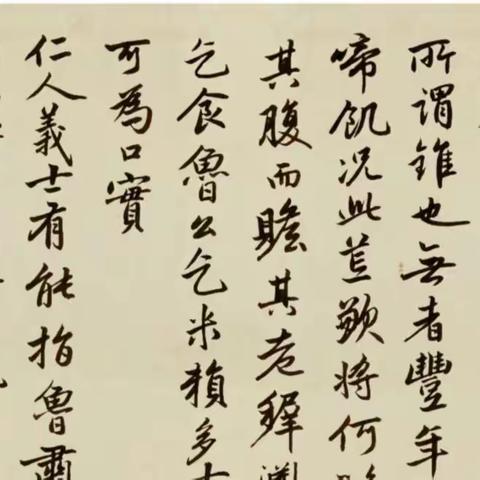 所謂錐也無者豐年
啼飢況此荒歉將何
其腹而贍其老稚
乞食魯公乞米賴多
可為口實
仁人義士有能指魯肅